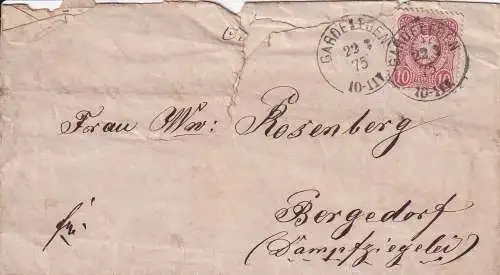 GARDELEGEN
22 3
75
10-11V
GARDELEGEN
22 3
10-11V
10 10
Frau Ww: Rosenberg
fr:
Bergedorf
(Dampfziegelei)